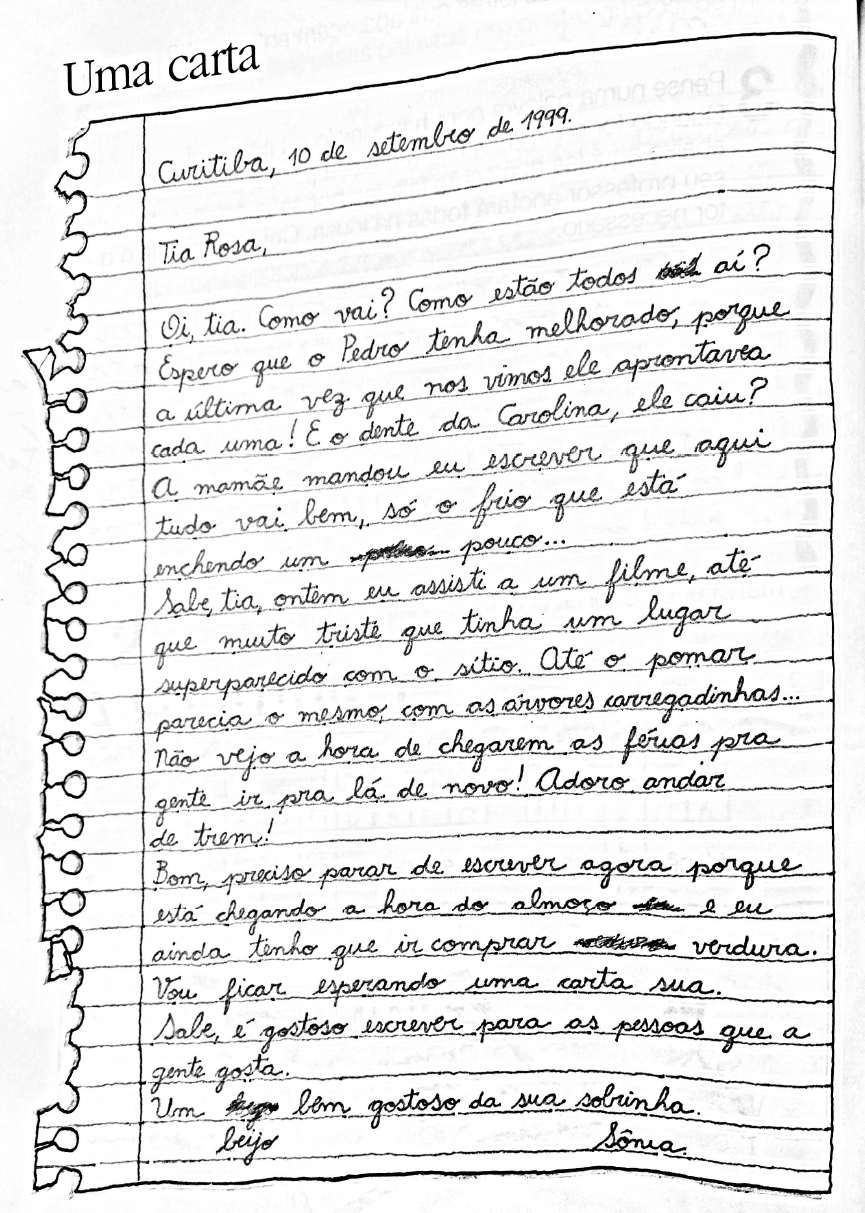 Uma carta
Curitiba, 10 de setembro de 1999.
Tia Rosa,
Oi, tia. Como vai? Como estão todos aí?
Espero que o Pedro tenha melhorado, porque
a última vez que nos vimos ele aprontava
cada uma! E o dente da Carolina, ele caiu?
A mamãe mandou eu escrever que aqui
tudo vai bem, só o frio que está
enchendo um pouco...
Sabe, tia, ontem eu assisti a um filme, até
que muito triste que tinha um lugar
superparecido com o sítio. Até o pomar
parecia o mesmo, com as árvores carregadinhas...
Não vejo a hora de chegarem as férias pra
gente ir pra lá de novo! Adoro andar
de trem!
Bom, preciso parar de escrever agora porque
está chegando a hora do almoço e eu
ainda tenho que ir comprar verdura.
Vou ficar esperando uma carta sua.
Sabe, é gostoso escrever para as pessoas que a
gente gosta.
Um bem gostoso da sua sobrinha.
beijo Sônia.